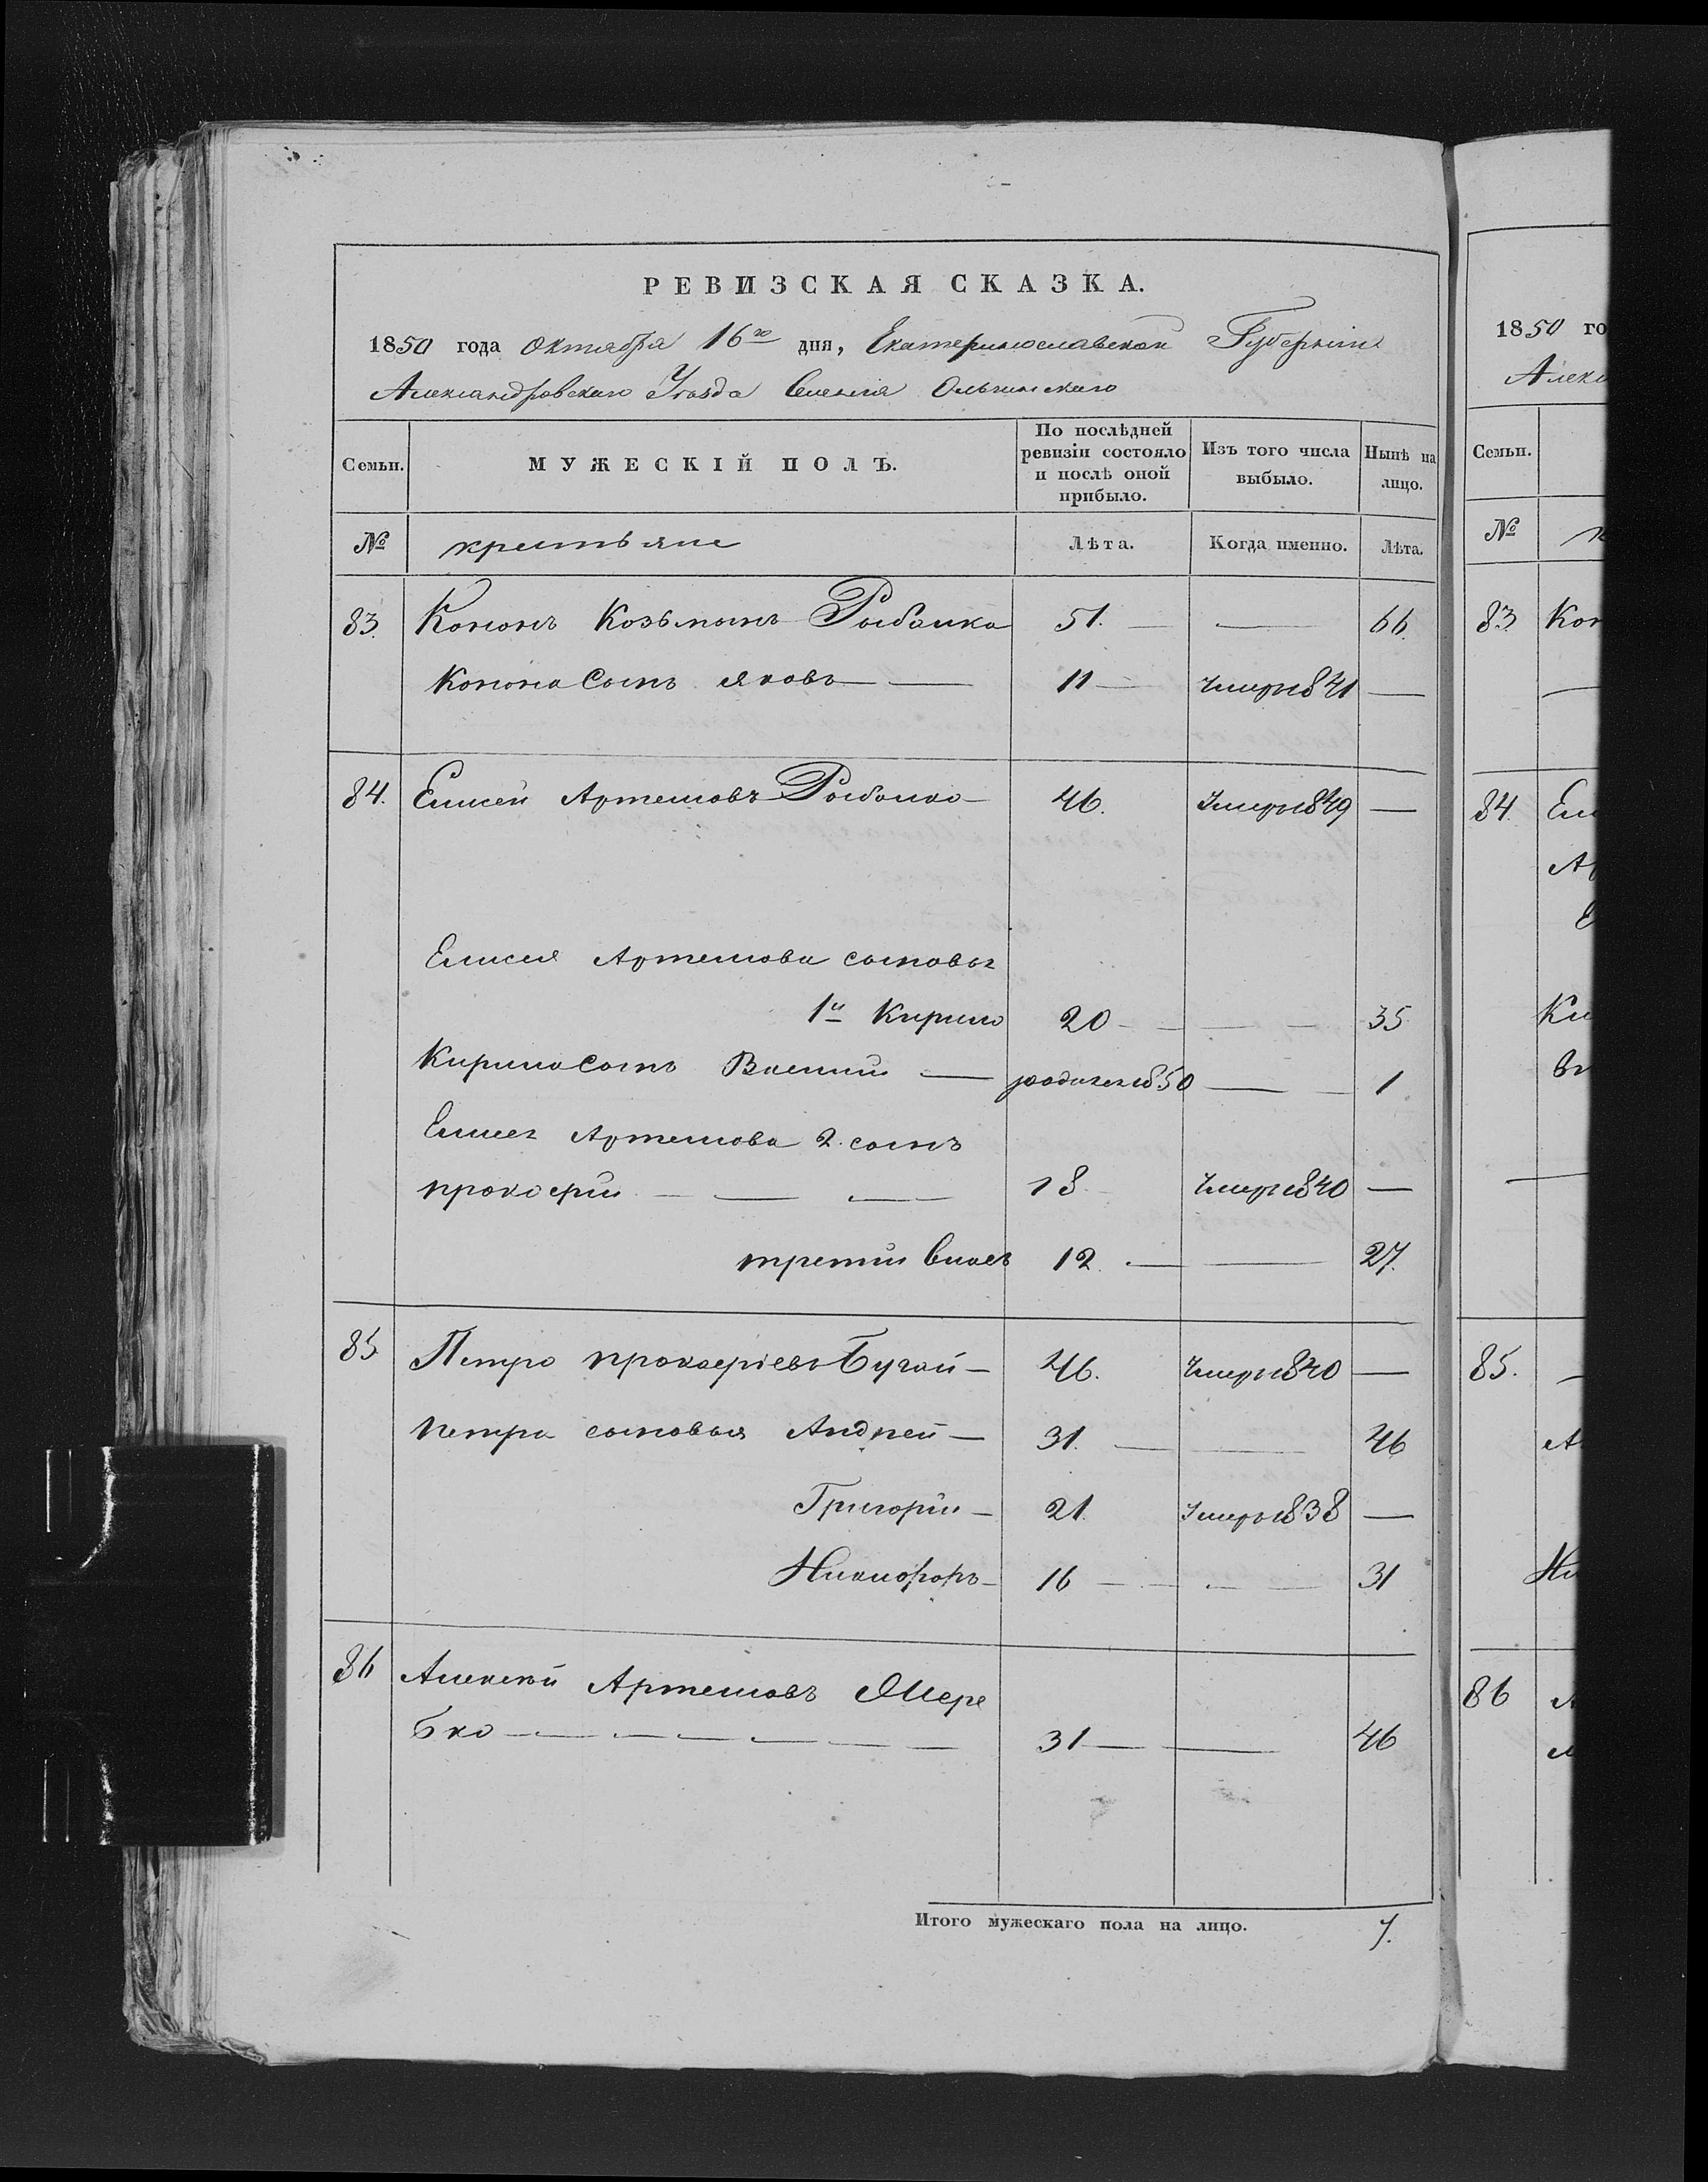 РЕВИЗСКАЯ СКАЗКА.
1850 года Октября 16го дня, Екатеринославской Губерніи
Александровскаго Уезда Селенія Ольгинскаго
Семьи.
МУЖЕСКІЙ ПОЛЪ.
По послѣдней ревизіи состояло и послѣ оной прибыло.
Изъ того числа выбыло.
Нынѣ на лицо.
№ крестьяне Лѣта. Когда именно. Лѣта.
83. Кононъ Козьминъ Рыбалка 51. — — 66.
Конона Сынъ Яковъ — — 11 — Умеръ 1841 —
84. Елисей Артемовъ Рыбалка — 46. Умеръ 1849 —
Елисея Артемова сыновья
1й Кирило 20 — — — — 35
Кирила Сынъ Василий — родился 1850 — — 1
Елисея Артемова 2. сынъ
прокофій — — — 18 Умеръ 1840 —
третий 12. — — 27.
85 Петро прокофіевъ Бугай — 46. Умеръ 1840 —
петра сыновья Андрей — 31. — — 46
Григорій — 21. Умеръ 1838 —
Никифоръ — 16 — — — — 31
86 Алексей Артемовъ Жере
бко — — — — — — — 31 — — 46
Итого мужескаго пола на лицо. 7.
1850 го
Алекс
Семьи.
№
83 Кон
84. Ели
Ар
Ки
85. —
Ан
Ни
86